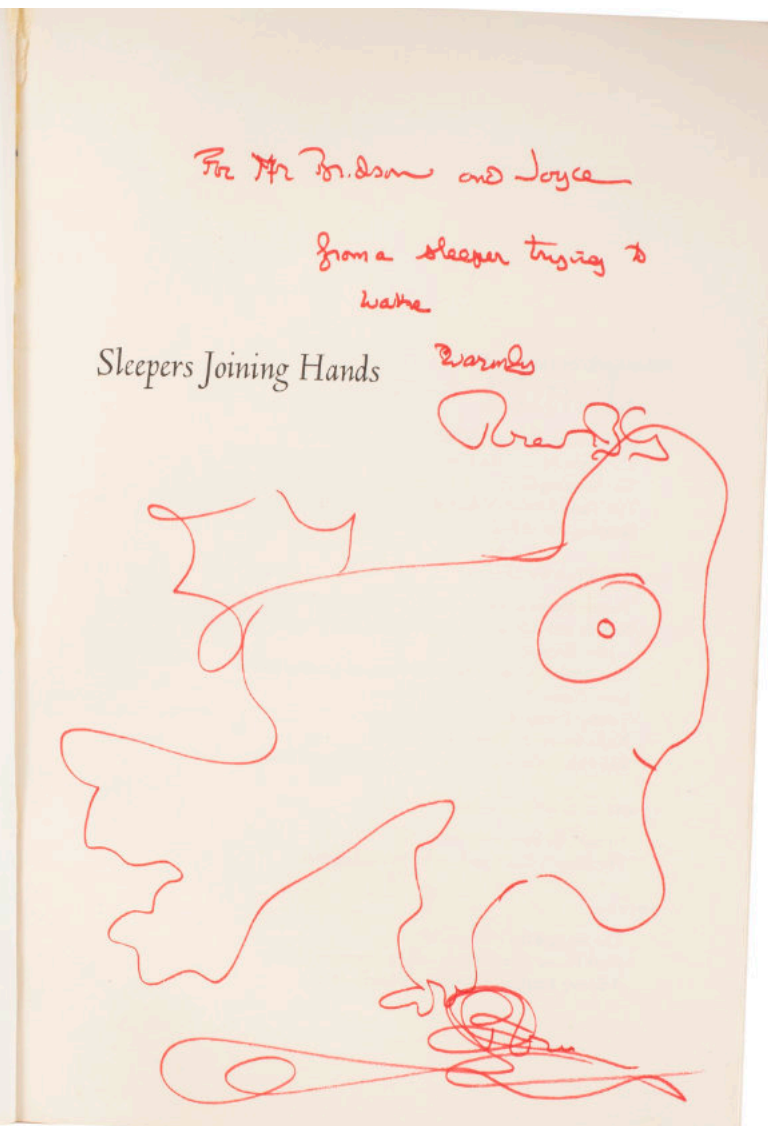 For Mr Bridson and Joyce
from a sleeper trying to
wake
Sleepers Joining Hands
Warmly
Robert Bly